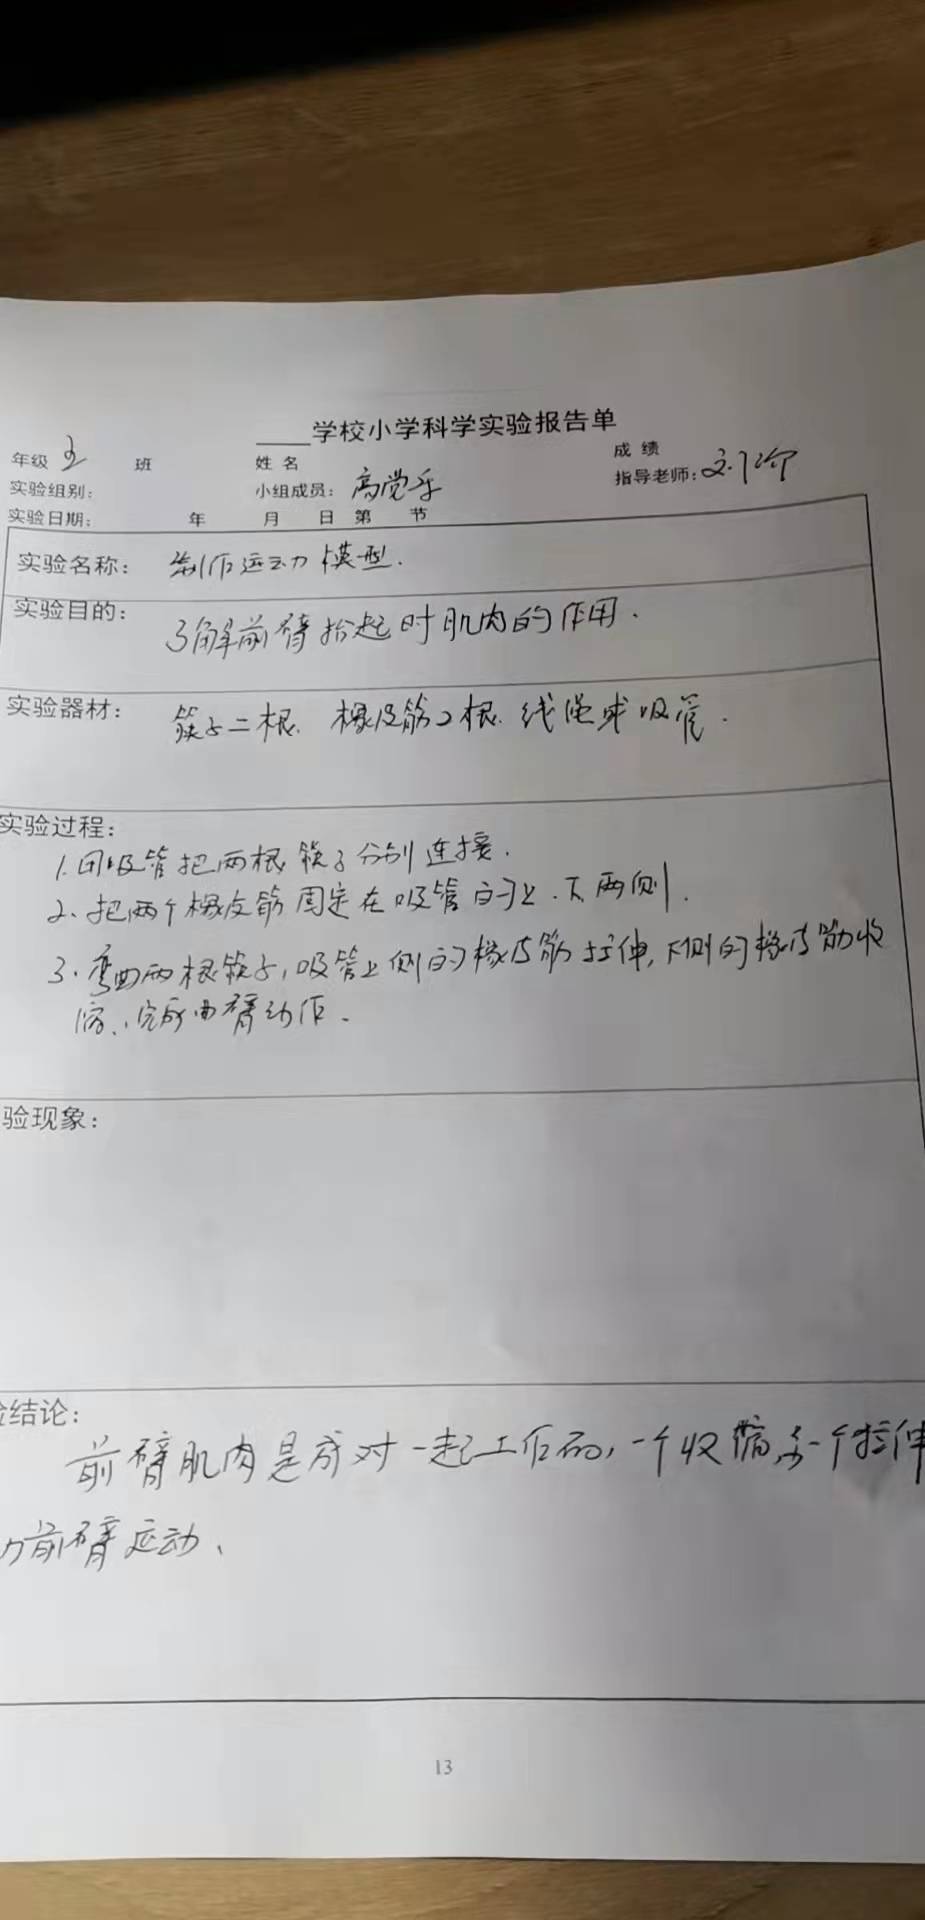 ____学校小学科学实验报告单
年级 班 姓名 成绩
实验组别： 小组成员：高觉 指导老师：
实验日期： 年 月 日 第 节
实验名称： 制作运动模型.
实验目的： 了解前臂抬起时肌肉的作用.
实验器材： 筷子二根. 橡皮筋2根. 线绳或吸管.
实验过程：
1.用吸管把两根筷子分别连接.
2.把两个橡皮筋固定在吸管的上.下两侧.
3.弯曲两根筷子,吸管上侧的橡皮筋拉伸,下侧的橡皮筋收
缩.,完成曲臂动作.
验现象：
验结论：
前臂肌肉是成对一起工作的,一个收缩,另一个拉伸
前臂运动、
13